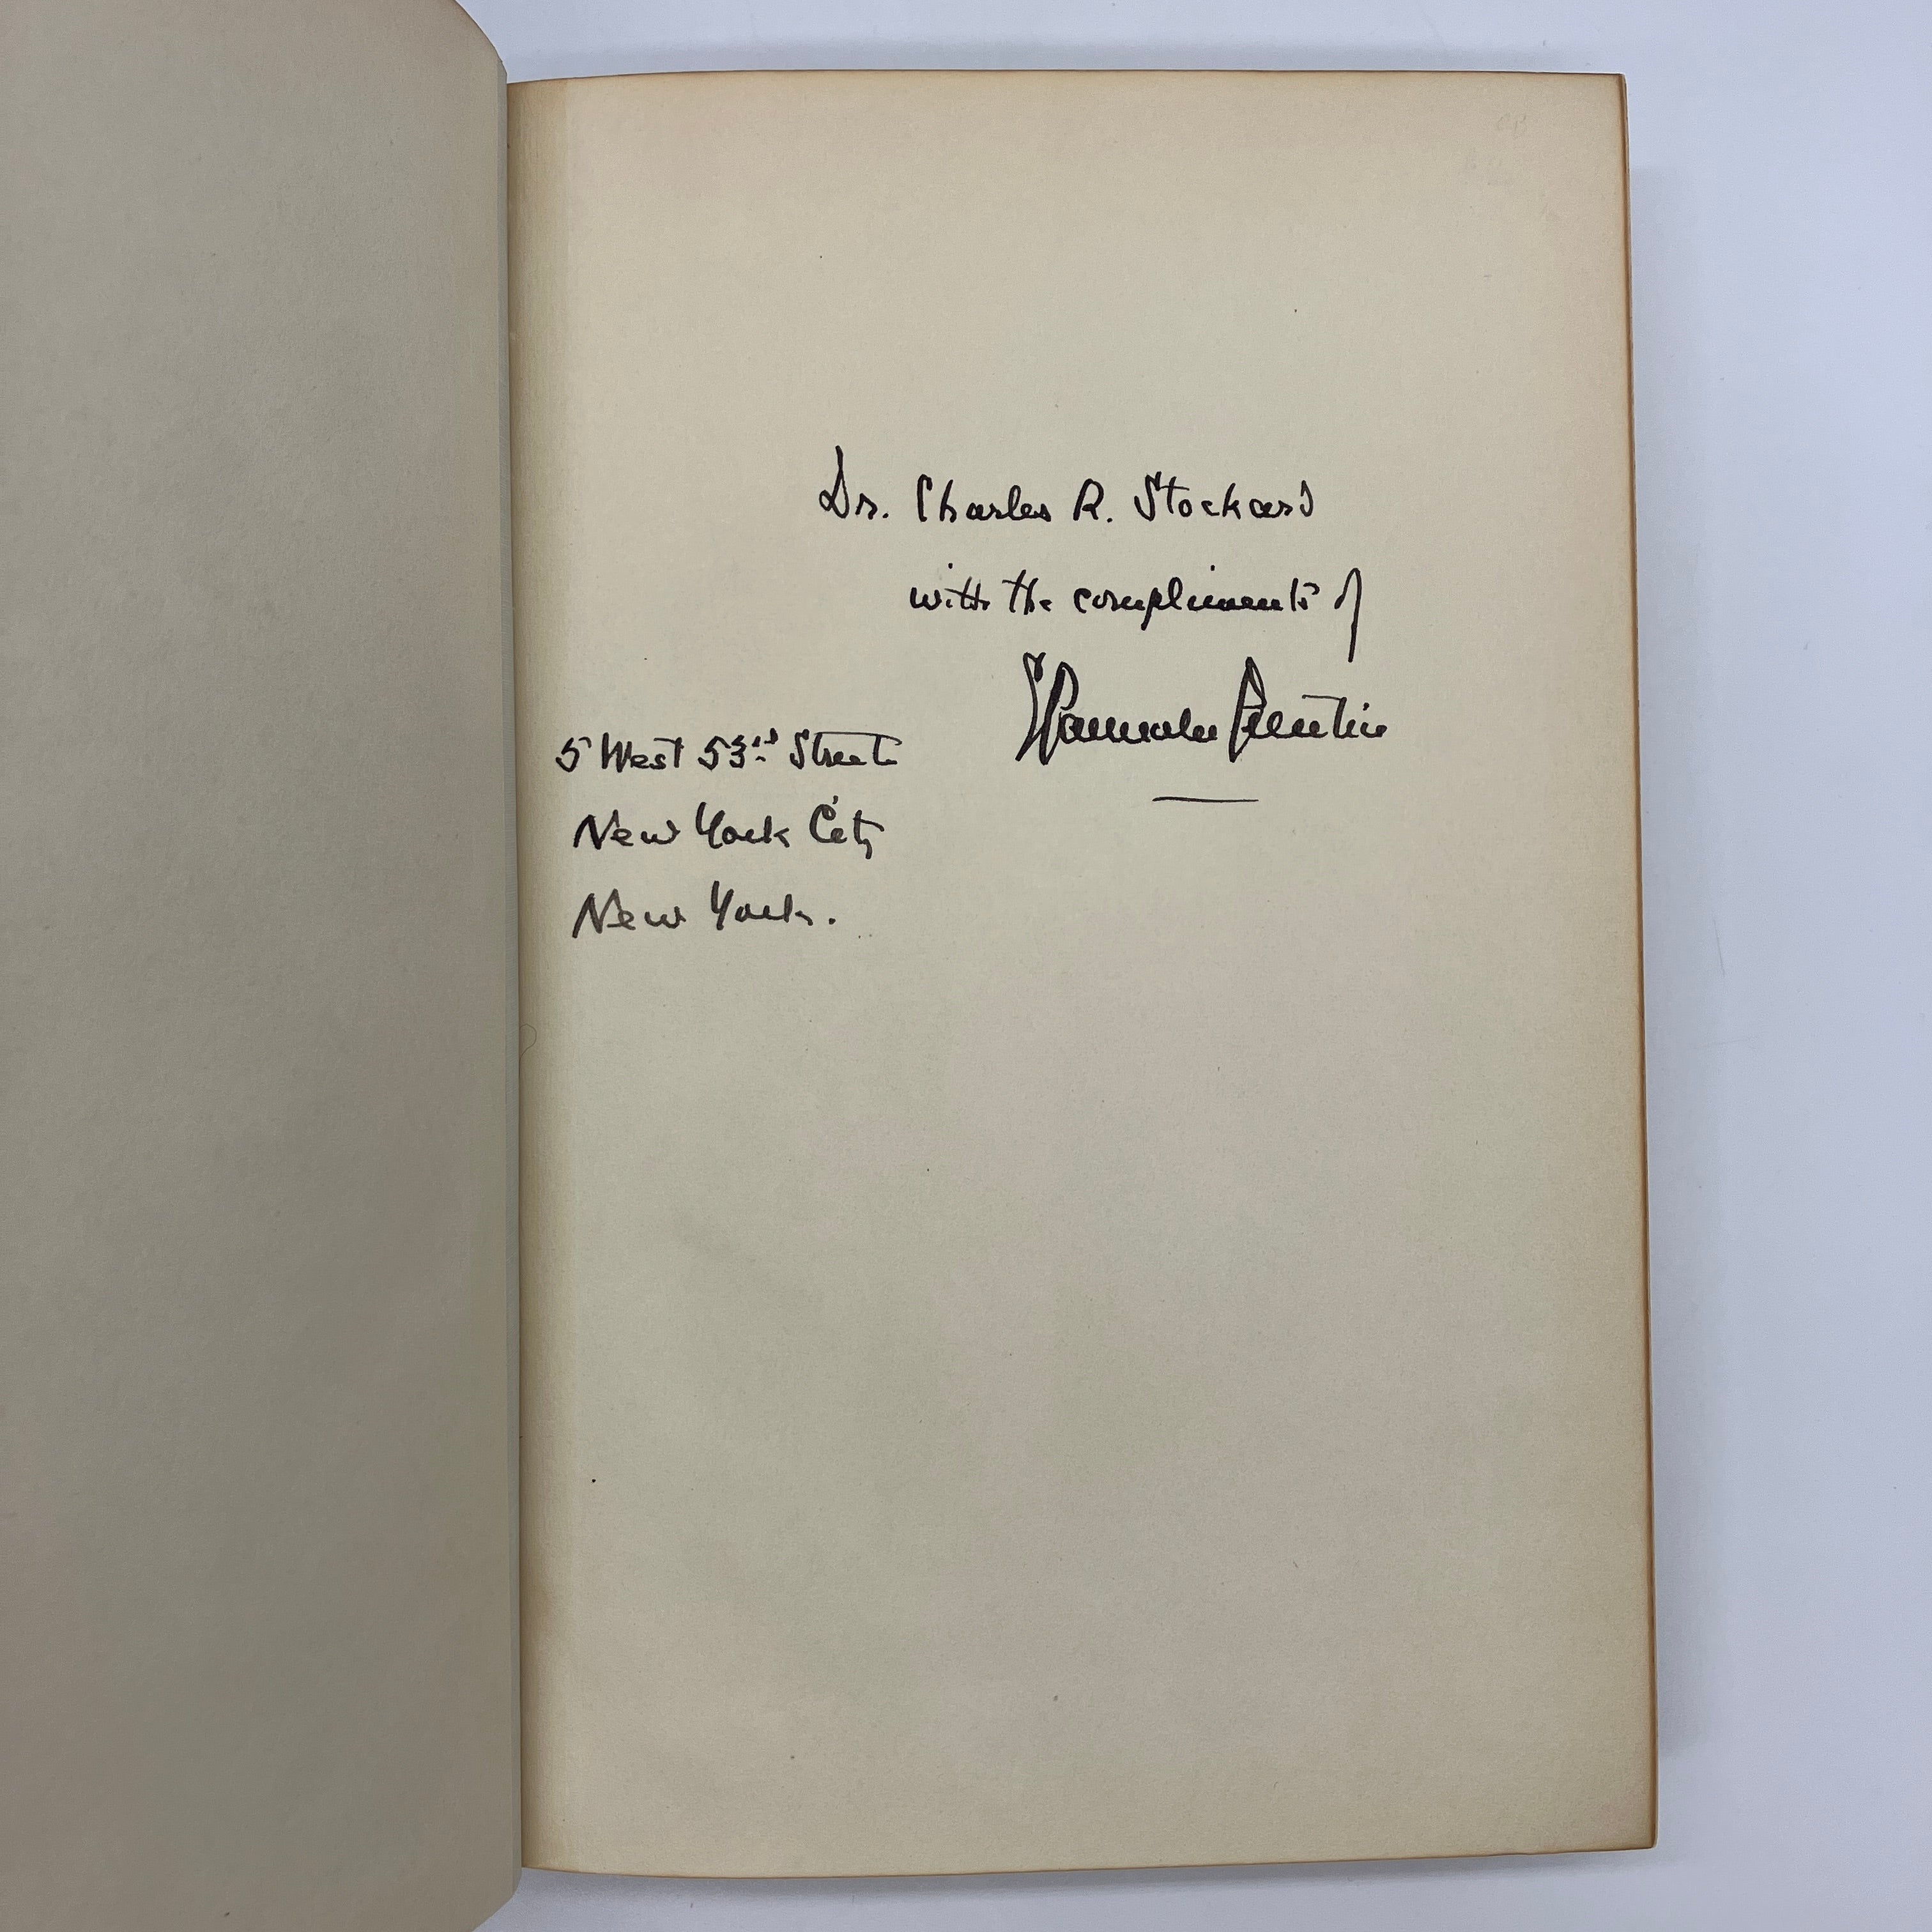 Dr. Charles R. Stockard
with the compliments of
E Parmalee Prentice
5 West 53rd Street
New York City
New York.